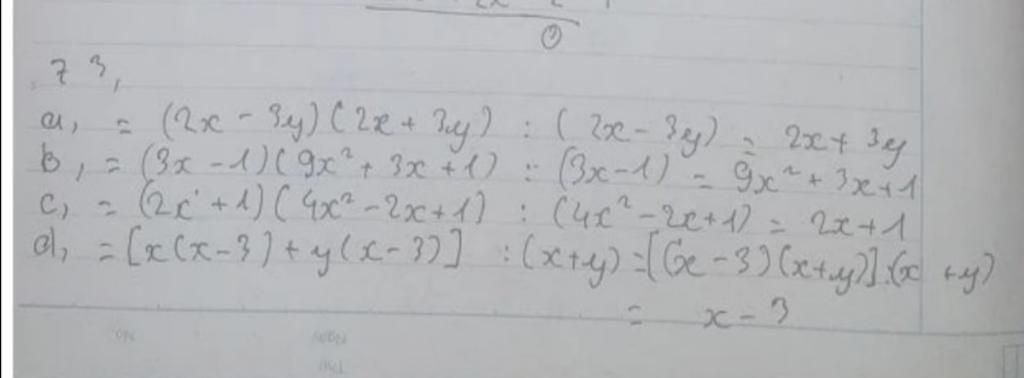 0
73,
a, = (2x - 3y)(2x + 3y) : (2x - 3y) = 2x + 3y
b, = (3x - 1)(9x² + 3x + 1) : (3x - 1) = 9x² + 3x + 1
c, = (2x + 1)(4x² - 2x + 1) : (4x² - 2x + 1) = 2x + 1
d, = [x(x - 3) + y(x - 3)] : (x + y) = [(x - 3)(x + y)] : (x + y)
= x - 3